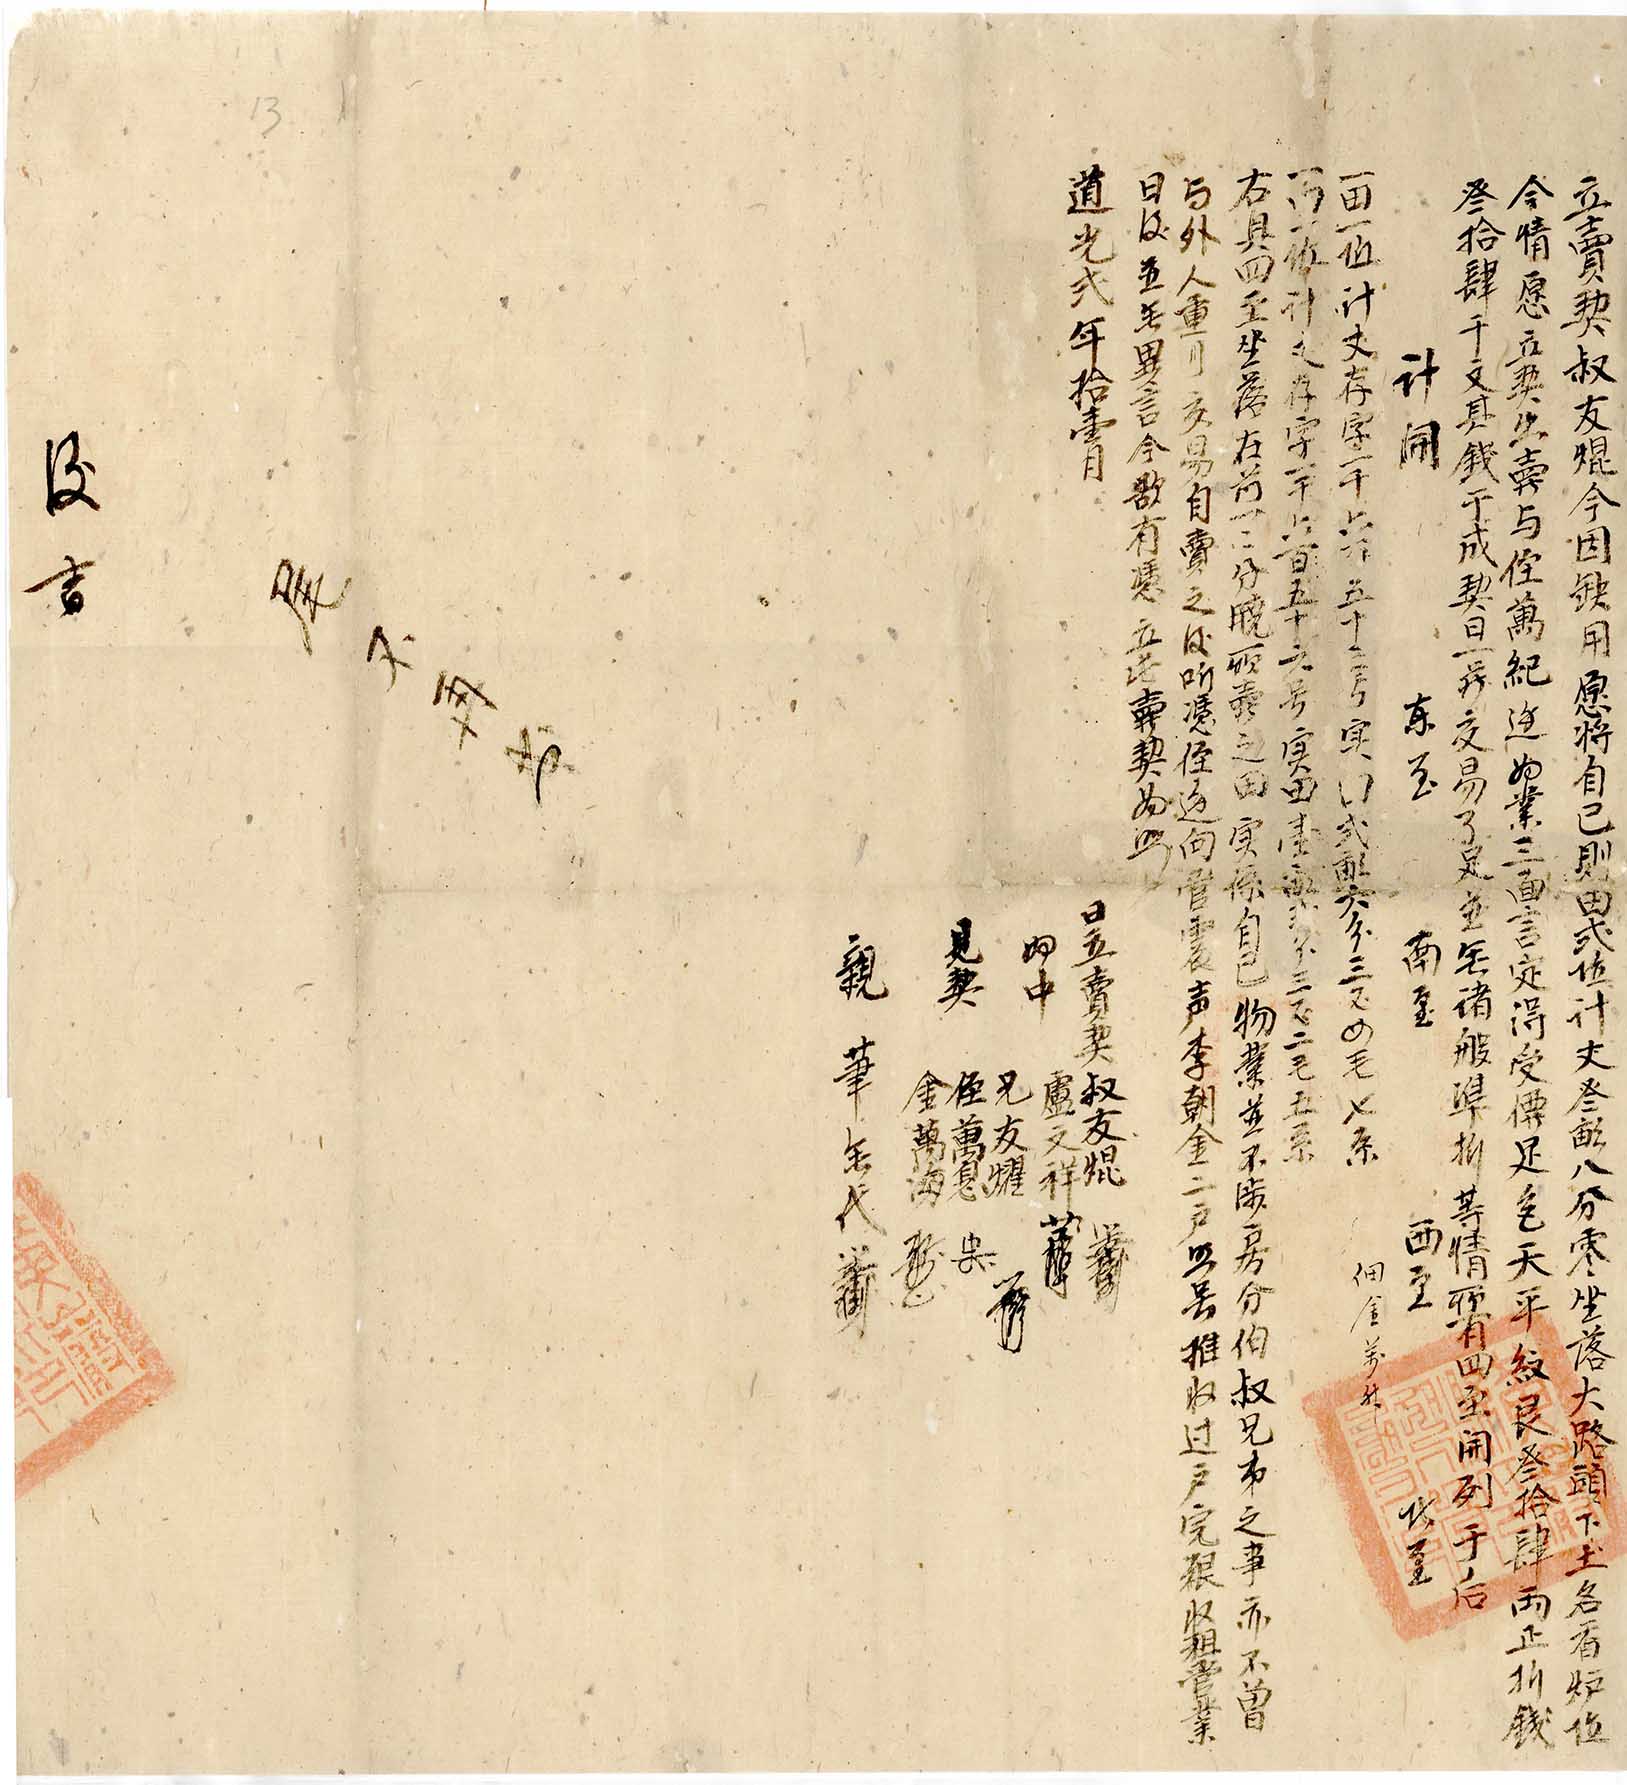 立賣契叔友焜今因缺用愿將自己則田弍坵計丈叁畝八分零坐落大路頭下土名香炉坵
今情愿立契出賣与侄萬紀邊為業三面言定得受價足色天平紋艮叁拾肆兩正折錢
叁拾肆千文其錢于成契日一并交易了足並無諸般準折等情所有四至開列于后
計開 東至 南至 西至 北至
一田一坵計丈存字一千六百五十三号实田弍畝六分三厘四毛七系 佃金萬
一田一坵計丈存字一千六百五十六号实田壹畝弍分三厘二毛五系
右具四至坐落在前一一分曉所賣之田实係自己物業並不涉房分伯叔兄弟之事亦不曾
与外人重交易自賣之後听憑侄邊向管震声李朝金二户照号推收过户完粮收租管業
日後並無異言今欲有憑立此賣契為照
道光弍年拾壹月 日立賣契叔友焜
為中 盧文祥
兄友耀
見契 侄萬息
金萬海
親筆無代
後吉